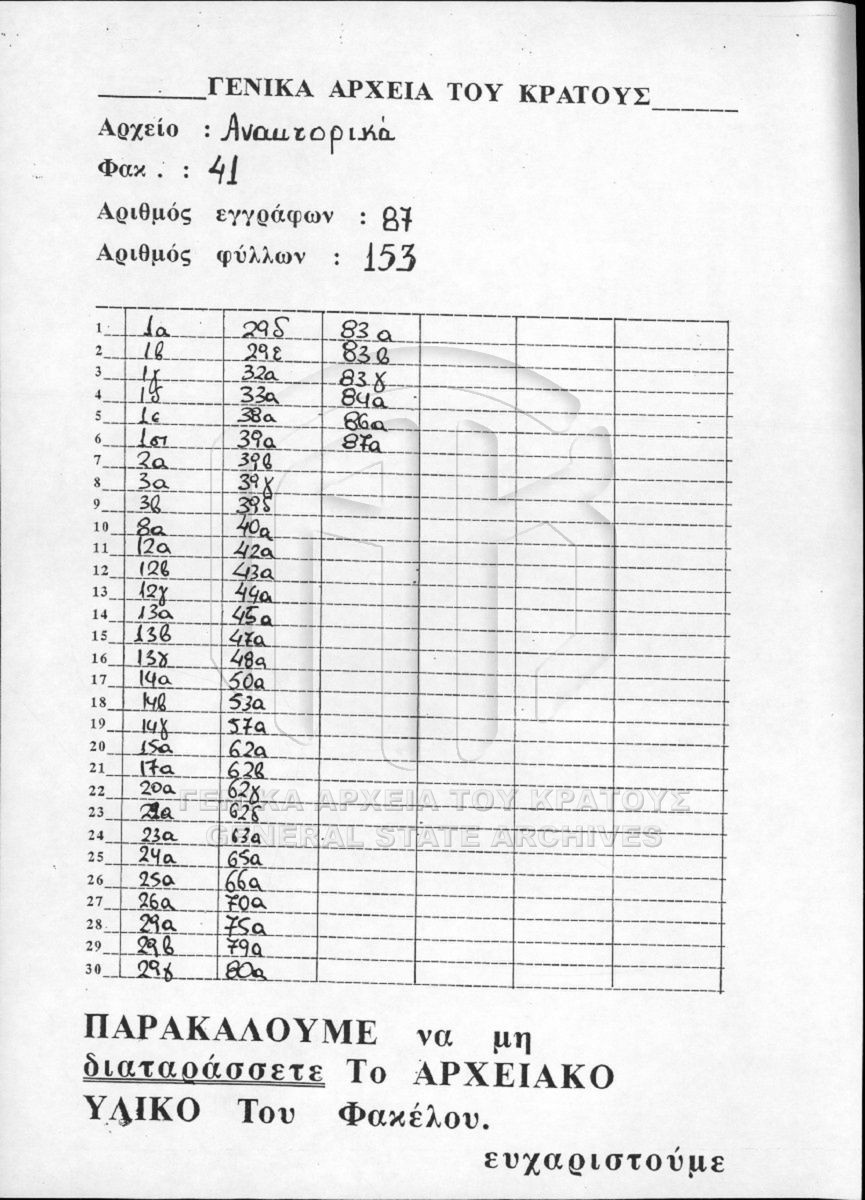 ΓΕΝΙΚΑ ΑΡΧΕΙΑ ΤΟΥ ΚΡΑΤΟΥΣ
Αρχείο : Ανακτορικά
Φακ . : 41
Αριθμός εγγράφων : 87
Αριθμός φύλλων : 153
1 1α 29δ 83α
2 1β 29ε 83β
3 1γ 32α 83γ
4 1δ 33α 84α
5 1ε 38α 86α
6 1στ 39α 87α
7 2α 39β
8 3α 39γ
9 3β 39δ
10 8α 40α
11 12α 42α
12 12β 43α
13 12γ 44α
14 13α 45α
15 13β 47α
16 13γ 48α
17 14α 50α
18 14β 53α
19 14γ 57α
20 15α 62α
21 17α 62β
22 20α 62γ
23 62δ
24 23α 63α
25 24α 65α
26 25α 66α
27 26α 70α
28 29α 75α
29 29β 79α
30 29γ 80α
ΓΕΝΙΚΑ ΑΡΧΕΙΑ ΤΟΥ ΚΡΑΤΟΥΣ
GENERAL STATE ARCHIVES
ΠΑΡΑΚΑΛΟΥΜΕ να μη
διαταράσσετε Το ΑΡΧΕΙΑΚΟ
ΥΛΙΚΟ Του Φακέλου.
ευχαριστούμε